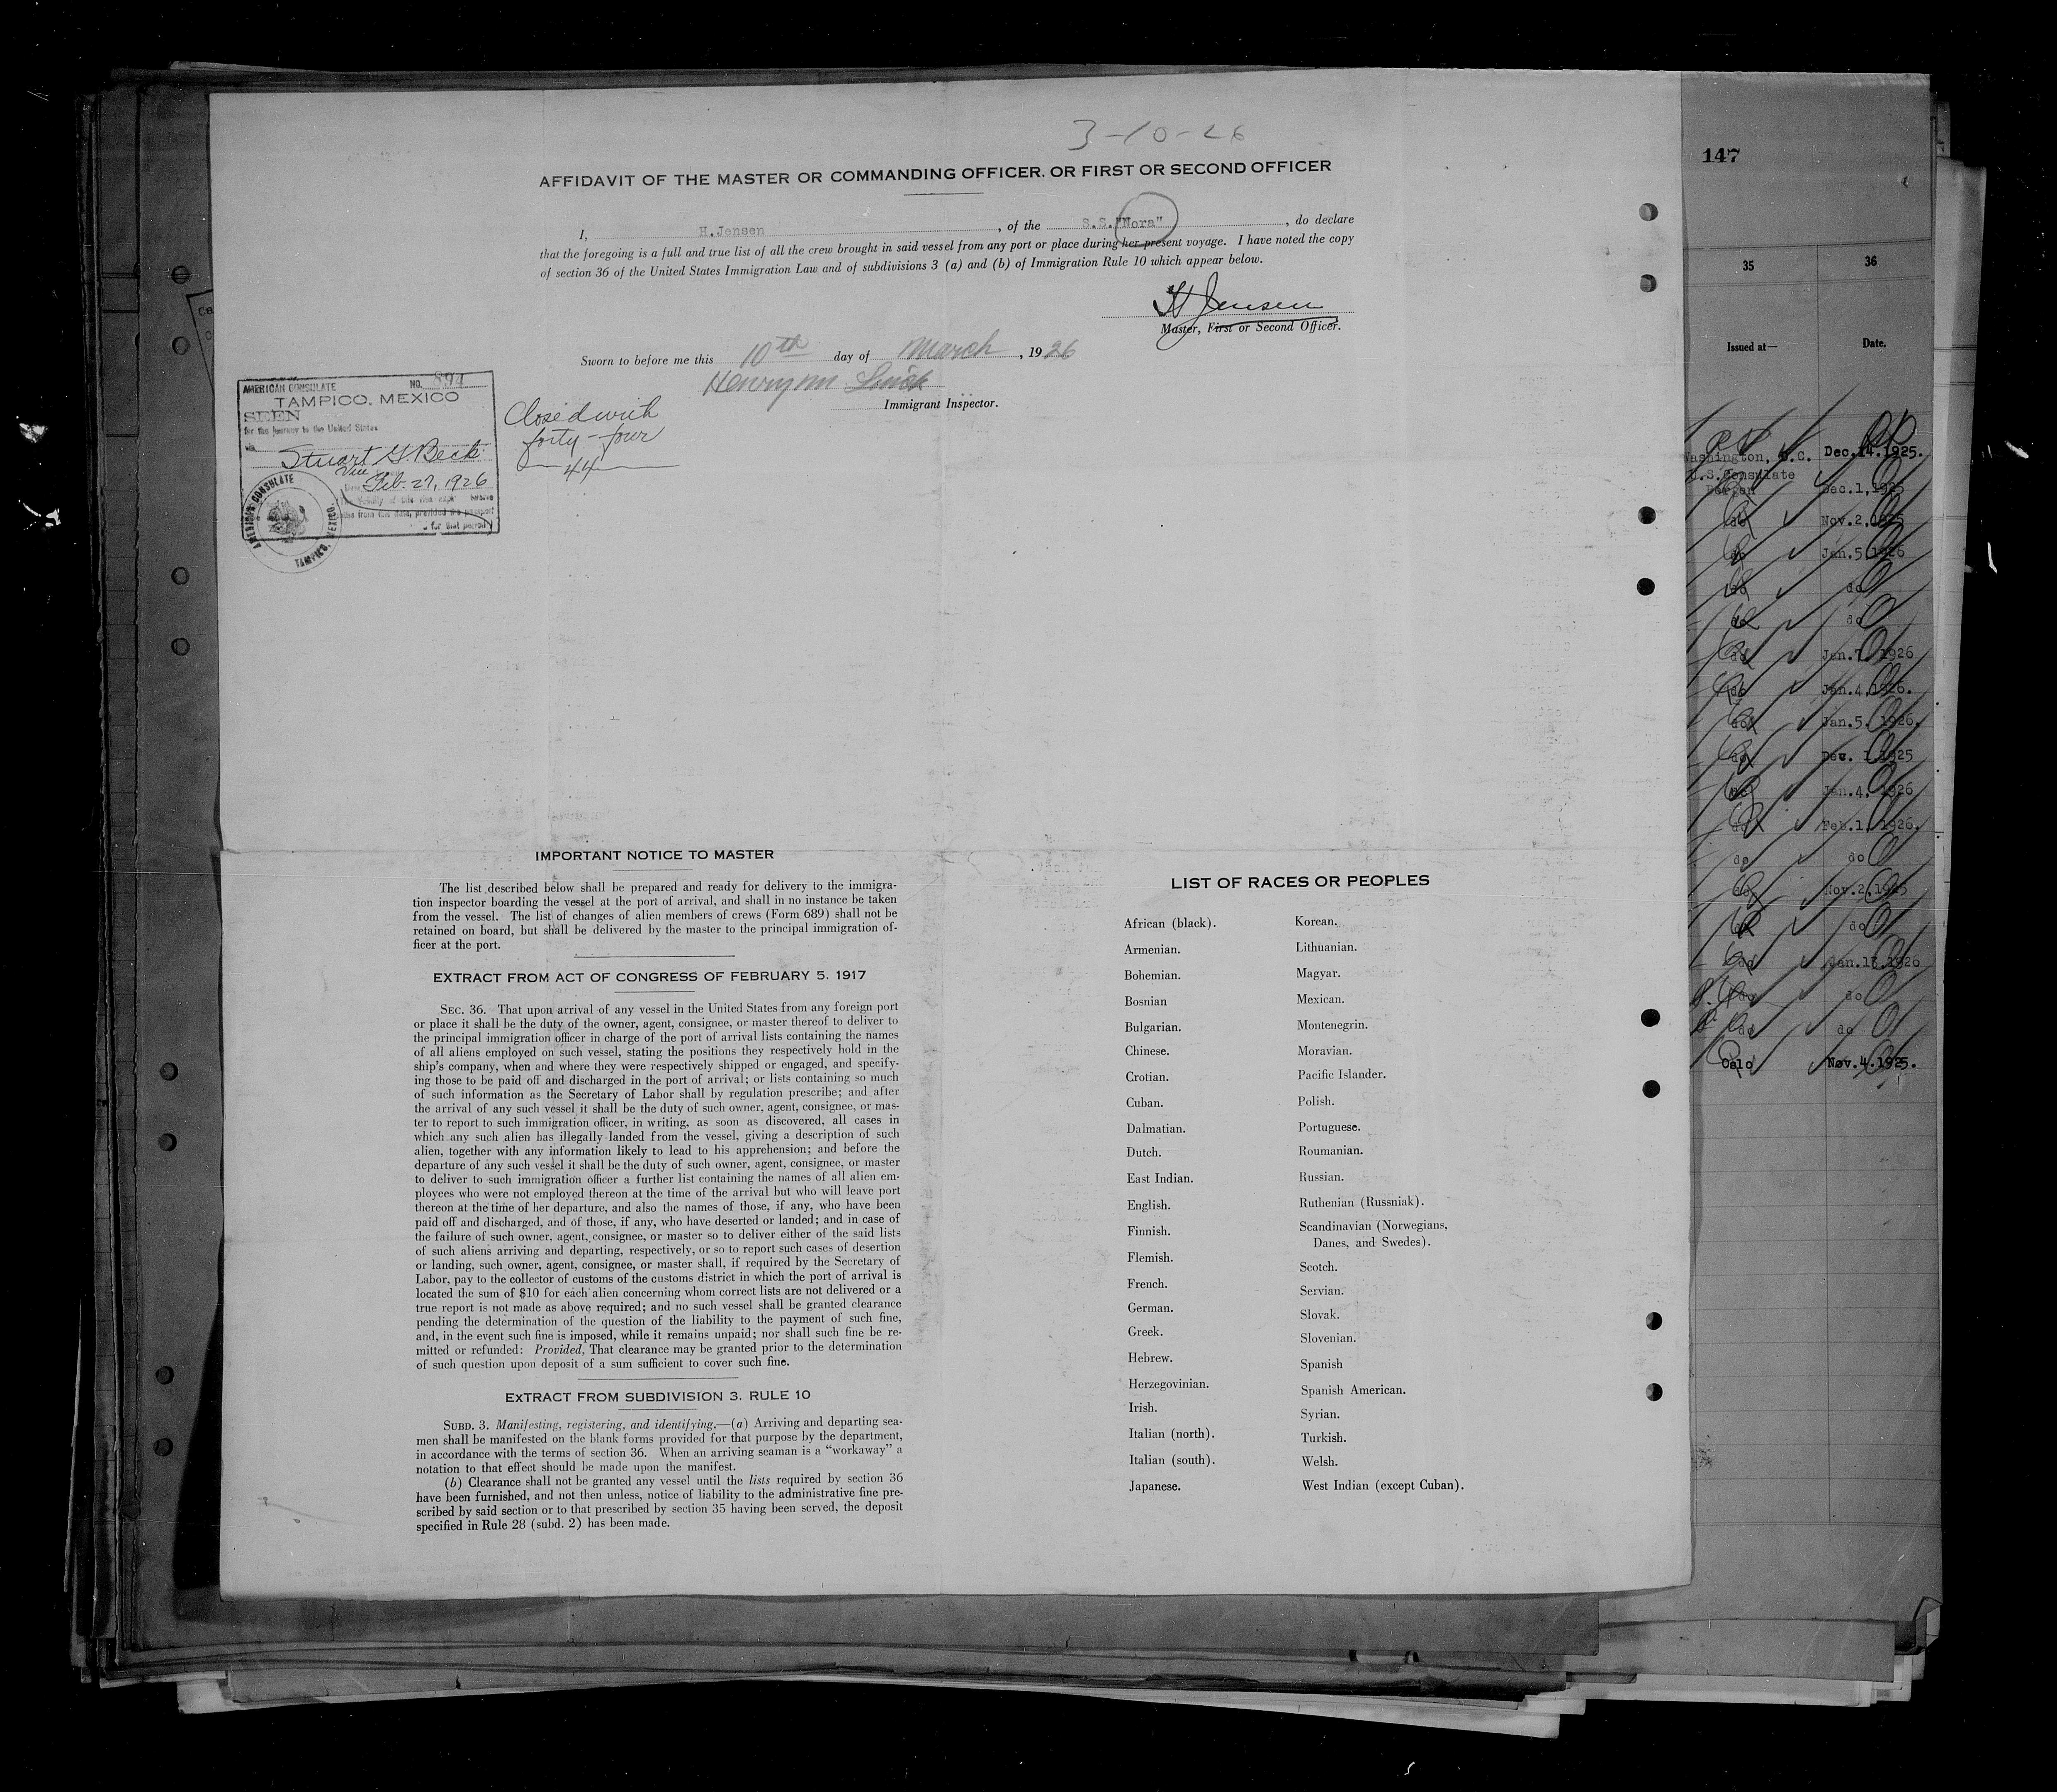 3-10-26
147
AFFIDAVIT OF THE MASTER OR COMMANDING OFFICER, OR FIRST OR SECOND OFFICER
I, H.Jensen, of the S.S."Nora", do declare
that the foregoing is a full and true list of all the crew brought in said vessel from any port or place during her present voyage. I have noted the copy
of section 36 of the United States Immigration Law and of subdivisions 3 (a) and (b) of Immigration Rule 10 which appear below.
H Jensen
Master, First or Second Officer.
Sworn to before me this 10th day of March, 1926
Henry M
Immigrant Inspector.
AMERICAN CONSULATE NO. 894
TAMPICO, MEXICO
SEEN
for the journey to the United States
via
Stuart G. Beck
Vice
Date Feb. 27, 1926
from this date, provided the passport
for that period
AMERICAN CONSULATE
TAMPICO, MEXICO.
Closed with
forty-four
44
IMPORTANT NOTICE TO MASTER
The list described below shall be prepared and ready for delivery to the immigra-
tion inspector boarding the vessel at the port of arrival, and shall in no instance be taken
from the vessel. The list of changes of alien members of crews (Form 689) shall not be
retained on board, but shall be delivered by the master to the principal immigration of-
ficer at the port.
EXTRACT FROM ACT OF CONGRESS OF FEBRUARY 5, 1917
SEC. 36. That upon arrival of any vessel in the United States from any foreign port
or place it shall be the duty of the owner, agent, consignee, or master thereof to deliver to
the principal immigration officer in charge of the port of arrival lists containing the names
of all aliens employed on such vessel, stating the positions they respectively hold in the
ship's company, when and where they were respectively shipped or engaged, and specify-
ing those to be paid off and discharged in the port of arrival; or lists containing so much
of such information as the Secretary of Labor shall by regulation prescribe; and after
the arrival of any such vessel it shall be the duty of such owner, agent, consignee, or mas-
ter to report to such immigration officer, in writing, as soon as discovered, all cases in
which any such alien has illegally landed from the vessel, giving a description of such
alien, together with any information likely to lead to his apprehension; and before the
departure of any such vessel it shall be the duty of such owner, agent, consignee, or master
to deliver to such immigration officer a further list containing the names of all alien em-
ployees who were not employed thereon at the time of the arrival but who will leave port
thereon at the time of her departure, and also the names of those, if any, who have been
paid off and discharged, and of those, if any, who have deserted or landed; and in case of
the failure of such owner, agent, consignee, or master so to deliver either of the said lists
of such aliens arriving and departing, respectively, or so to report such cases of desertion
or landing, such owner, agent, consignee, or master shall, if required by the Secretary of
Labor, pay to the collector of customs of the customs district in which the port of arrival is
located the sum of $10 for each alien concerning whom correct lists are not delivered or a
true report is not made as above required; and no such vessel shall be granted clearance
pending the determination of the question of the liability to the payment of such fine,
and, in the event such fine is imposed, while it remains unpaid; nor shall such fine be re-
mitted or refunded: Provided, That clearance may be granted prior to the determination
of such question upon deposit of a sum sufficient to cover such fine.
EXTRACT FROM SUBDIVISION 3, RULE 10
SUBD. 3. Manifesting, registering, and identifying.—(a) Arriving and departing sea-
men shall be manifested on the blank forms provided for that purpose by the department,
in accordance with the terms of section 36. When an arriving seaman is a "workaway" a
notation to that effect should be made upon the manifest.
(b) Clearance shall not be granted any vessel until the lists required by section 36
have been furnished, and not then unless, notice of liability to the administrative fine pre-
scribed by said section or to that prescribed by section 35 having been served, the deposit
specified in Rule 28 (subd. 2) has been made.
LIST OF RACES OR PEOPLES
African (black).
Armenian.
Bohemian.
Bosnian
Bulgarian.
Chinese.
Crotian.
Cuban.
Dalmatian.
Dutch.
East Indian.
English.
Finnish.
Flemish.
French.
German.
Greek.
Hebrew.
Herzegovinian.
Irish.
Italian (north).
Italian (south).
Japanese.
Korean.
Lithuanian.
Magyar.
Mexican.
Montenegrin.
Moravian.
Pacific Islander.
Polish.
Portuguese.
Roumanian.
Russian.
Ruthenian (Russniak).
Scandinavian (Norwegians,
Danes, and Swedes).
Scotch.
Servian.
Slovak.
Slovenian.
Spanish
Spanish American.
Syrian.
Turkish.
Welsh.
West Indian (except Cuban).
35 36
Issued at— Date.
Washington, D.C. Dec.14.1925.
U.S.Consulate
Bergen Dec.1,1925
do Nov.2,1925
do Jan.5,1926
do do
do do
do Jan.7, 1926
do Jan.4,1926.
do Jan.5. 1926.
do Dec. 1 1925
do Jan.4, 1926
do Feb.1, 1926.
do do
do Nov.2,1925
do do
do Jan.13.1926
do do
do do
Oslo Nov.4.1925.